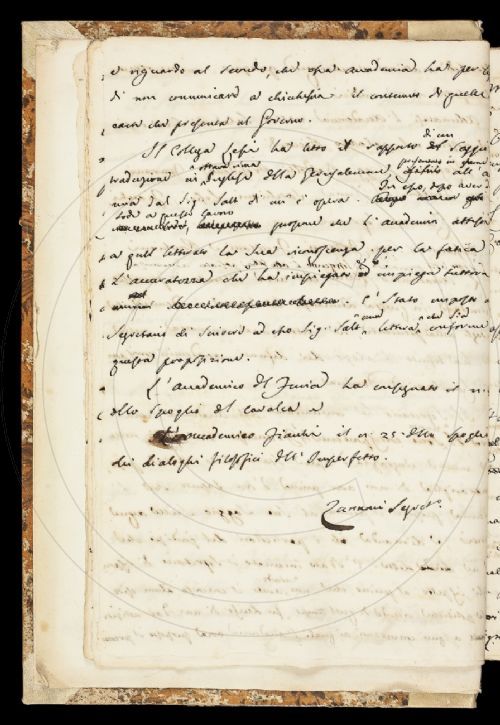 e riguardo al secondo, che essa Accademia ha per
di non comunicare a chichesia il contenuto di quelle
carte che presenta al Governo.
Il Collega Lessi ha letto il rapporto di un saggio
traduzione in ottava rima Inglese della Gerusalemme, presentato in dono all'
mia dal Sig. Salt di cui è opera. In esso, dopo aver
lode a questo lavoro propone che l'Accademia attesti
a quel letterato la sua riconoscenza per la fatica
l'accuratezza che ha impiegata ed impiega tuttora
È stato imposto al
Segretario di scrivere ad esso Sig. Salt una lettera che sia conforme
questa proposizione.
L'Accademico Del Furia ha consegnato il
dello spoglio del Cavalca e
l'Accademico Fiacchi il n. 25 dello spoglio
dei dialoghi filosofici dell'Imperfetto.
Zannoni Segret.